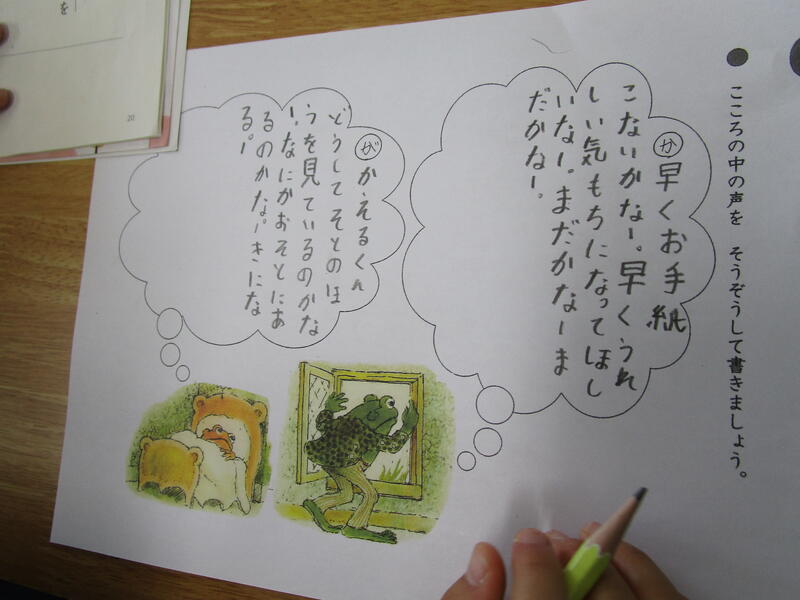 こころの中の声を そうぞうして書きましょう。
か 早くお手紙
こないかなー。早くうれ
しい気もちになってほし
いなー。まだかなーま
だかなー。
が かえるくん
どうしてそとのほ
うを見ているのかな
ー。なにかおそとにあ
るのかなーきにな
るー
を
20